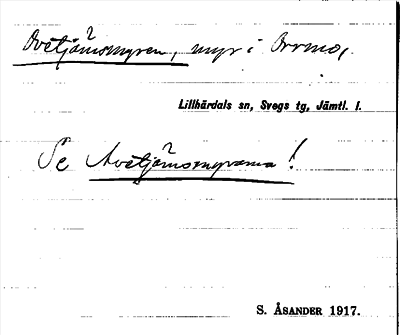 Ovetjärnsmyren, myr i Orrmo,
Lillhärdals sn, Svegs tg, Jämtl. l.
Se Avetjärnsmyrarna!
S. ÅSANDER 1917.